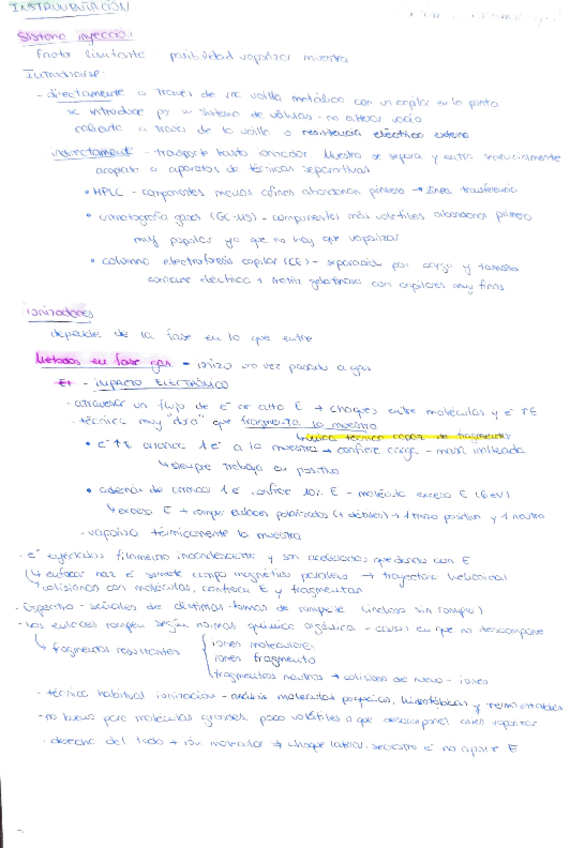 INSTRUMENTACIÓN
Sistema inyección
Factor limitante - posibilidad vaporizar muestra
Introducirse:
- directamente a través de una varilla metálica con un capilar en la punta
se introduce por un sistema de válvulas - no alterar vacío
calienta a través de la varilla o resistencia eléctrica externa
indirectamente - transporte hasta ionizador. Muestra se separa y entra secuencialmente
acoplado a aparatos de técnicas separativas
• HPLC - componentes menos afines abandonan primero → línea transferencia
• cromatografía gases (GC-MS) - componentes más volátiles abandonan primero
muy popular ya que no hay que vaporizar
• columna electroforesis capilar (CE) - separación por carga y tamaño
corriente eléctrica + matriz gelatinosa con capilares muy finos
ionizadores
depende de la fase en la que entre
Métodos en fase gas - ioniza una vez pasado a gas
EI - IMPACTO ELECTRÓNICO
- atraviesa un flujo de e⁻ de alta E → choques entre moléculas y e⁻ ↑E
- técnica muy "dura" que fragmenta la muestra
↳ única técnica capaz de fragmentar
• e⁻ ↑E arranca 1 e⁻ a la muestra → confiere carga - muy utilizada
↳ siempre trabaja en positivo
• además de arrancar 1 e⁻ confiere 10% E - molécula exceso E (6 eV)
↳ exceso E → rompe enlaces polarizados (+ débiles) → 1 trozo positivo y 1 neutro
- vaporiza térmicamente la muestra
- e⁻ eyectados filamento incandescente y son acelerados, quedando con E
↳ enfocar haz e⁻ somete campo magnético paralelo → trayectoria helicoidal
↳ colisionan con moléculas, confieren E y fragmentan
- Espectro - señales de distintas formas de romperse (incluso sin romper)
- Los enlaces rompen según normas química orgánica - casos en que no descompone
↳ fragmentos resultantes { iones moleculares
iones fragmento
fragmentos neutros → colisiona de nuevo - iones
- técnica habitual ionización - análisis moléculas pequeñas, hidrofóbicas y termoestables
- no buena para moléculas grandes, poco volátiles o que descomponen antes vaporizar
- derecha del todo → ion molecular → choque lateral, secuestro e⁻ no aporte E